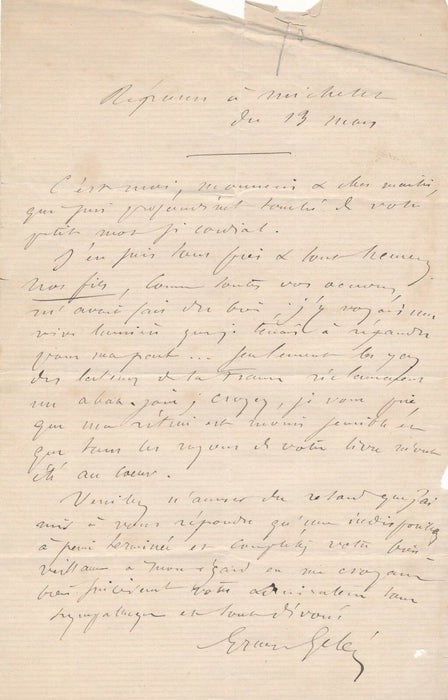 Réponse à Michelet
du 13 mars
C'est moi, monsieur & cher maître,
qui suis profondément touché de votre
petit mot si cordial.
J'en suis tout fier & tout heureux
Nos fils, comme toutes vos œuvres,
m'avait fait du bien, j'y voyais une
vive lumière que je tenais à répandre
pour ma part ... Seulement les yeux
des lecteurs de la France réclamaient
un abat-jour; croyez, je vous prie
que ma rétine est moins sensible et
que tous les rayons de votre livre m'ont
été au cœur.
Veuillez n'accuser du retard que j'ai
mis à vous répondre qu'une indisposition
à peine terminée et complétez votre bien-
veillance à mon égard en me croyant
bien sincèrement votre admirateur tout
sympathique et tout dévoué